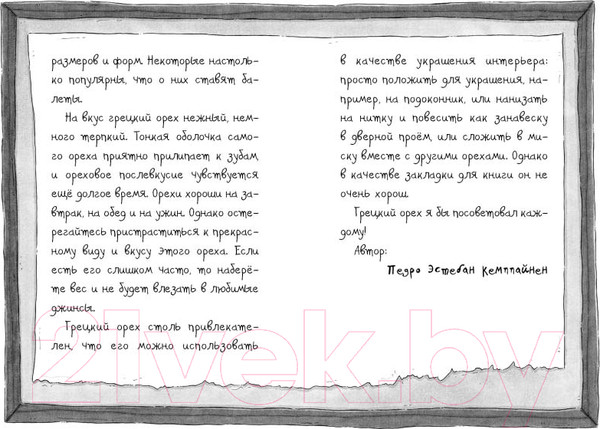 размеров и форм. Некоторые настоль-
ко популярны, что о них ставят ба-
леты.
На вкус грецкий орех нежный, нем-
ного терпкий. Тонкая оболочка само-
го ореха приятно прилипает к зубам
и ореховое послевкусие чувствуется
ещё долгое время. Орехи хороши на за-
втрак, на обед и на ужин. Однако осте-
регайтесь пристраститься к прекрас-
ному виду и вкусу этого ореха. Если
есть его слишком часто, то наберё-
те вес и не будет влезать в любимые
джинсы.
Грецкий орех столь привлекате-
лен, что его можно использовать
в качестве украшения интерьера:
просто положить для украшения, на-
пример, на подоконник, или нанизать
на нитку и повесить как занавеску
в дверной проём, или сложить в ми-
ску вместе с другими орехами. Однако
в качестве закладки для книги он не
очень хорош.
Грецкий орех я бы посоветовал каж-
дому!
Автор:
Педро Эстебан Кемппайнен
21vek.by